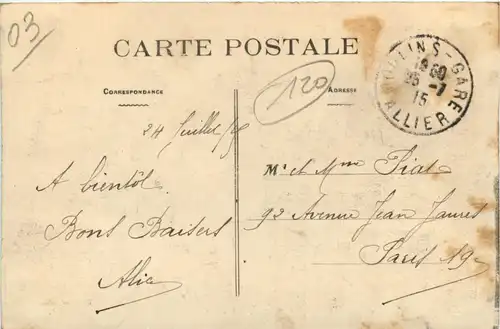 03
CARTE POSTALE
CORRESPONDANCE
ADRESSE
120
MOULINS-GARE
25-7
15
ALLIER
24 Juillet/15
A bientôt
Bons Baisers
Alice
Mr et Mme Piat
92 Avenue Jean Jaures
Paris 19e